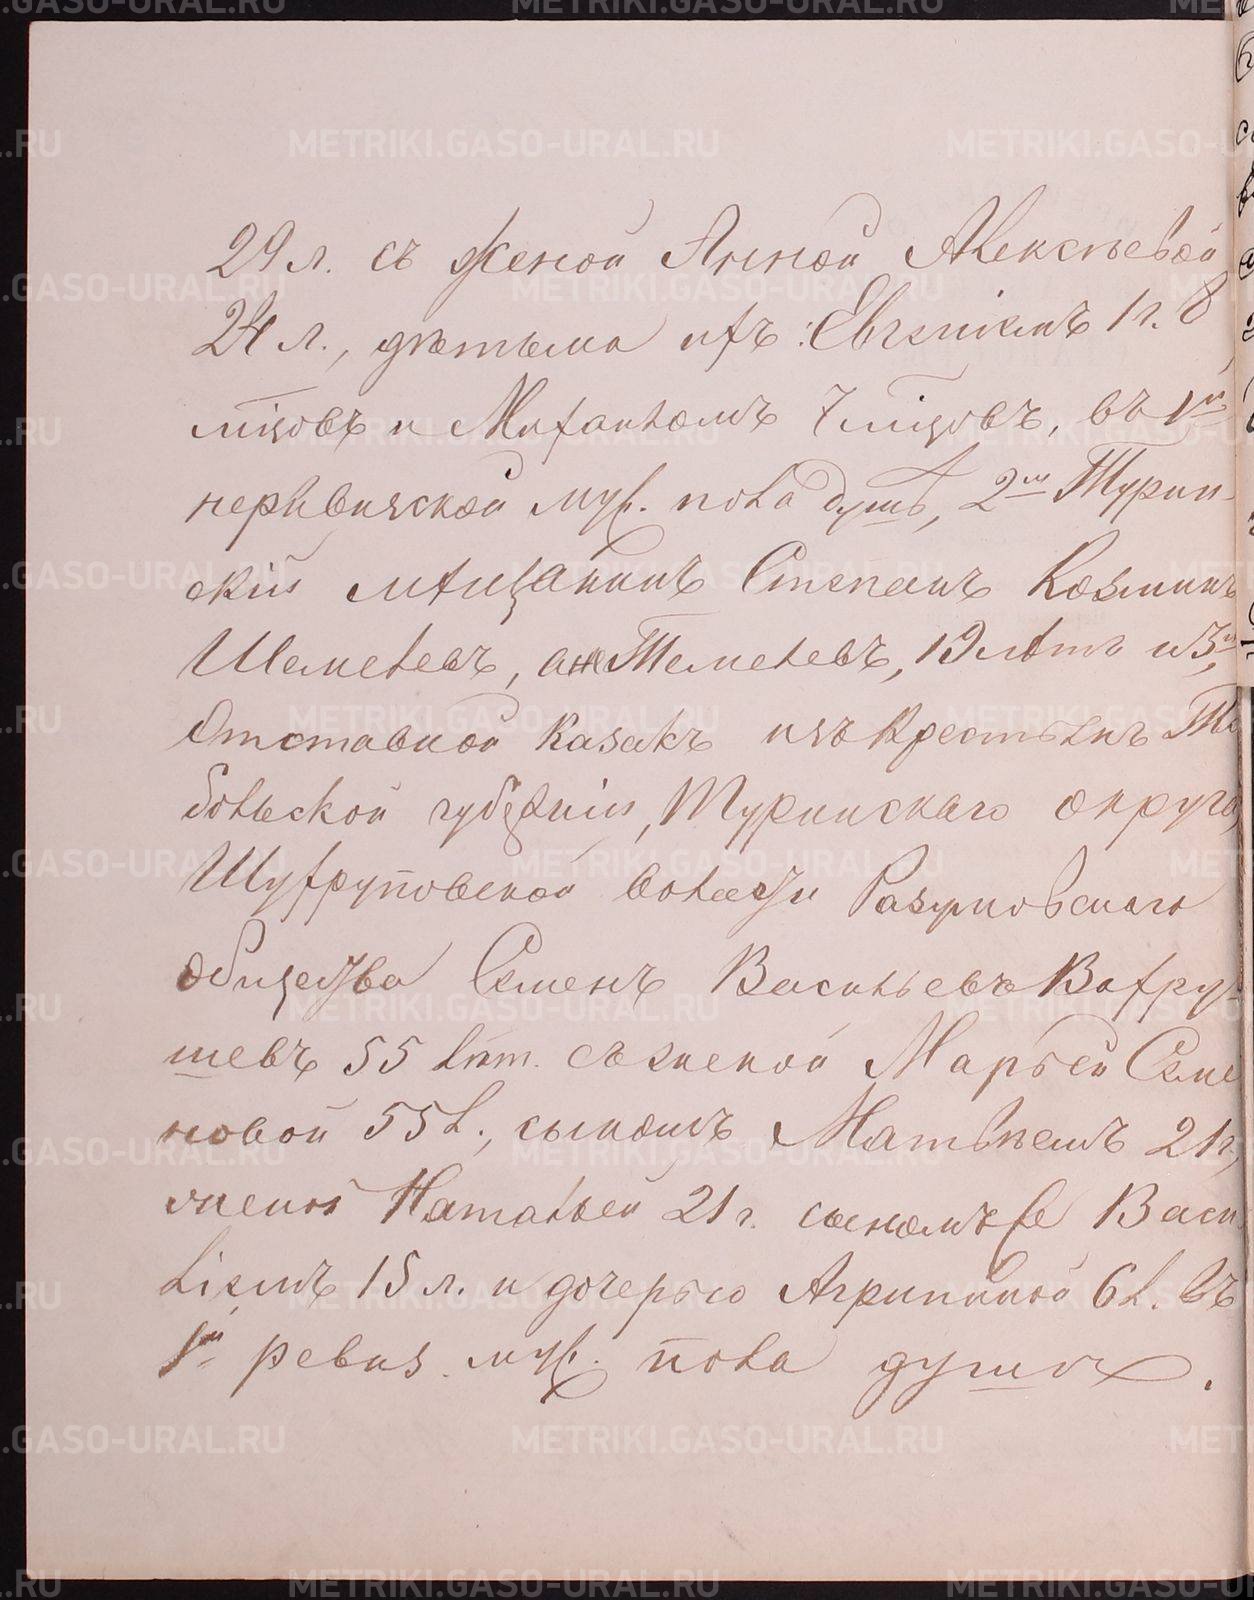 29 л. съ женой Анной Алексѣевой
24 л., дѣтьми ихъ: Евгеніемъ 1 г. 8
мѣсяцовъ и Михаиломъ 7 мѣсяцовъ, въ 1й
неревизской муж. пола душѣ, 2й Турин-
скій мѣщанинъ Степанъ Козминъ
Шеметевъ, онже Теметевъ, 19 лѣтъ и 3й,
Отставной казакъ изъ крестьянъ То
больской губерніи, Туринскаго округа,
Шухруповской волости Разумовскаго
общества Семенъ Васильевъ Вахру-
шевъ 55 лѣт. съ женой Марьей Семе
новой 55 л., сыномъ Матвѣемъ 21 г.,
женой Натальей 21 г. сыномъ Васи
ліемъ 15 л. и дочерью Агрипиной 6 л. въ
1й ревиз. муж. пола душѣ.
METRIKI.GASO-URAL.RU